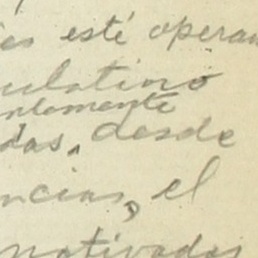 es esté operan
ulatino
ntemente
das, desde
ncias, el
motivadas